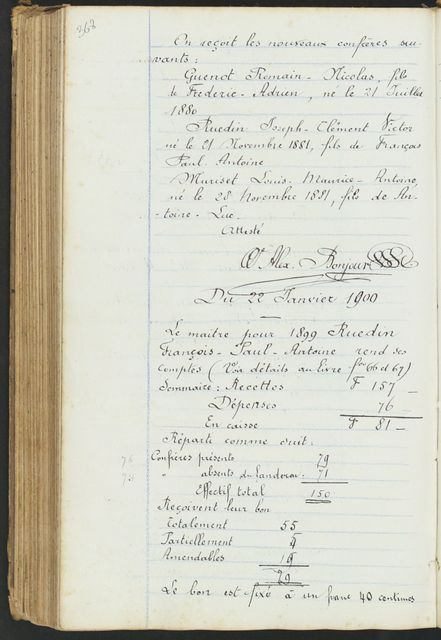 368
On reçoit les nouveaux confrères sui-
vants :
Guenot Romain - Nicolas, fils
de Frédéric - Adrien, né le 21 Juillet
1880
Ruedin Joseph - Clément Victor
né le 21 Novembre 1881, fils de François
Paul Antoine
Muriset Louis - Maurice - Antoine,
né le 28 Novembre 1881, fils de An-
- toine - Luc.
Attesté
Ct Alex. Bonjour
Du 22 Janvier 1900
Le maître pour 1899 Ruedin
François - Paul - Antoine rend ses
comptes (Voir détails au livre fos 66 et 67)
Sommaire : Recettes F 157 —
Dépenses 76 —
En caisse F 81 —
Réparti comme suit :
78 Confrères présents 79
72 " absents du Landeron : 71
Effectif total 150
Reçoivent leur bon
Totalement 55
Partiellement
Amendables
79
Le bon est fixé à un franc 40 centimes